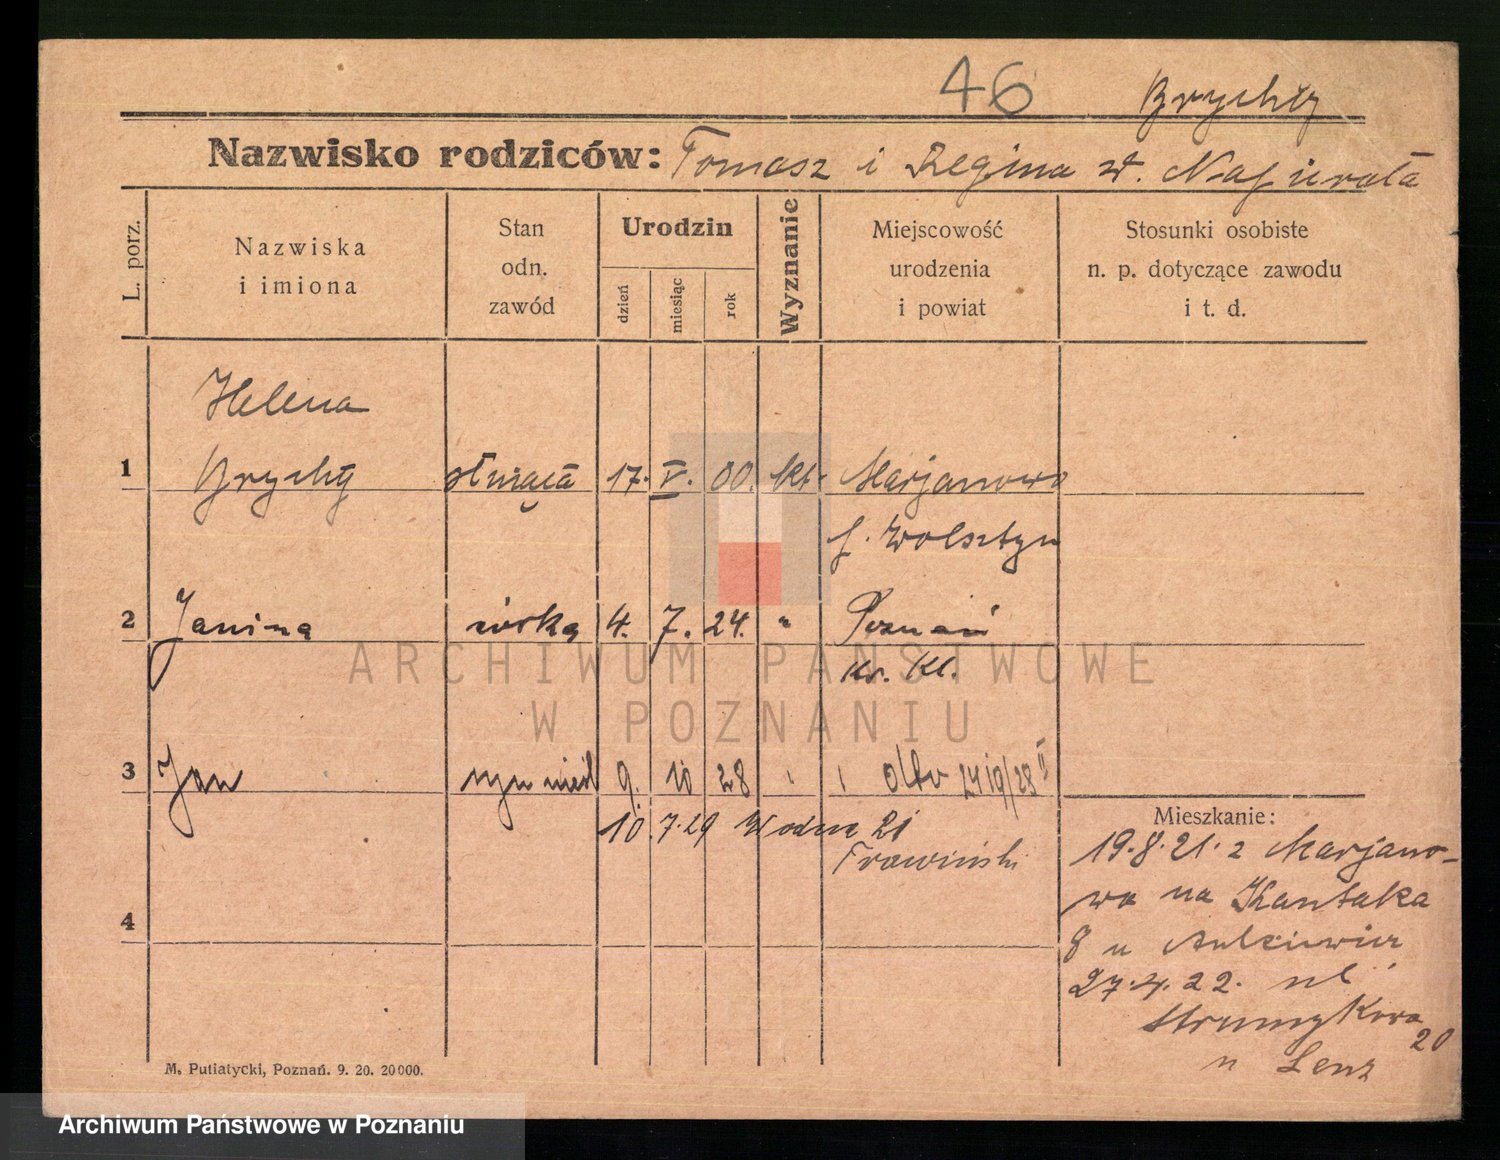 46 Brychcy
Nazwisko rodziców: Tomasz i Regina
L. porz.
Nazwiska
i imiona
Stan
odn.
zawód
Urodzin
dzień
miesiąc
rok
Wyznanie
Miejscowość
urodzenia
i powiat
Stosunki osobiste
n. p. dotyczące zawodu
i t. d.
Helena
1 Brychcy służąca 17. V. 00. kt. Marjanowo
p. Wolsztyn
2 Janina córka 4. 7. 24. " Poznań
3 Jan syn nieśl 9. 10 28
10.7.29 Wodna 21
Trawiński
4
Mieszkanie:
19.8.21. z Marjano-
wo na Kantaka
8 u
27.4.22. ul
Strumykowa
20
u Lenz
M. Putiatycki, Poznań. 9. 20. 20000.
ARCHIWUM PAŃSTWOWE
W POZNANIU
Archiwum Państwowe w Poznaniu